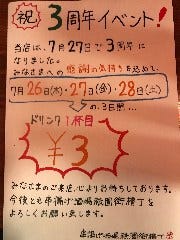 祝 3周年イベント!
当店は、7月27日で3周年に
なりました。
みなさまへの感謝の気持ちを込めて、
7月26日(木)・27日(金)・28日(土)
の3日間...
ドリンク1杯目
¥3
みなさまのご来店、心よりお待ちしております。
今後とも串揚げ酒場祇園街横丁を
よろしくお願い致します。
串揚げ酒場祇園街横丁